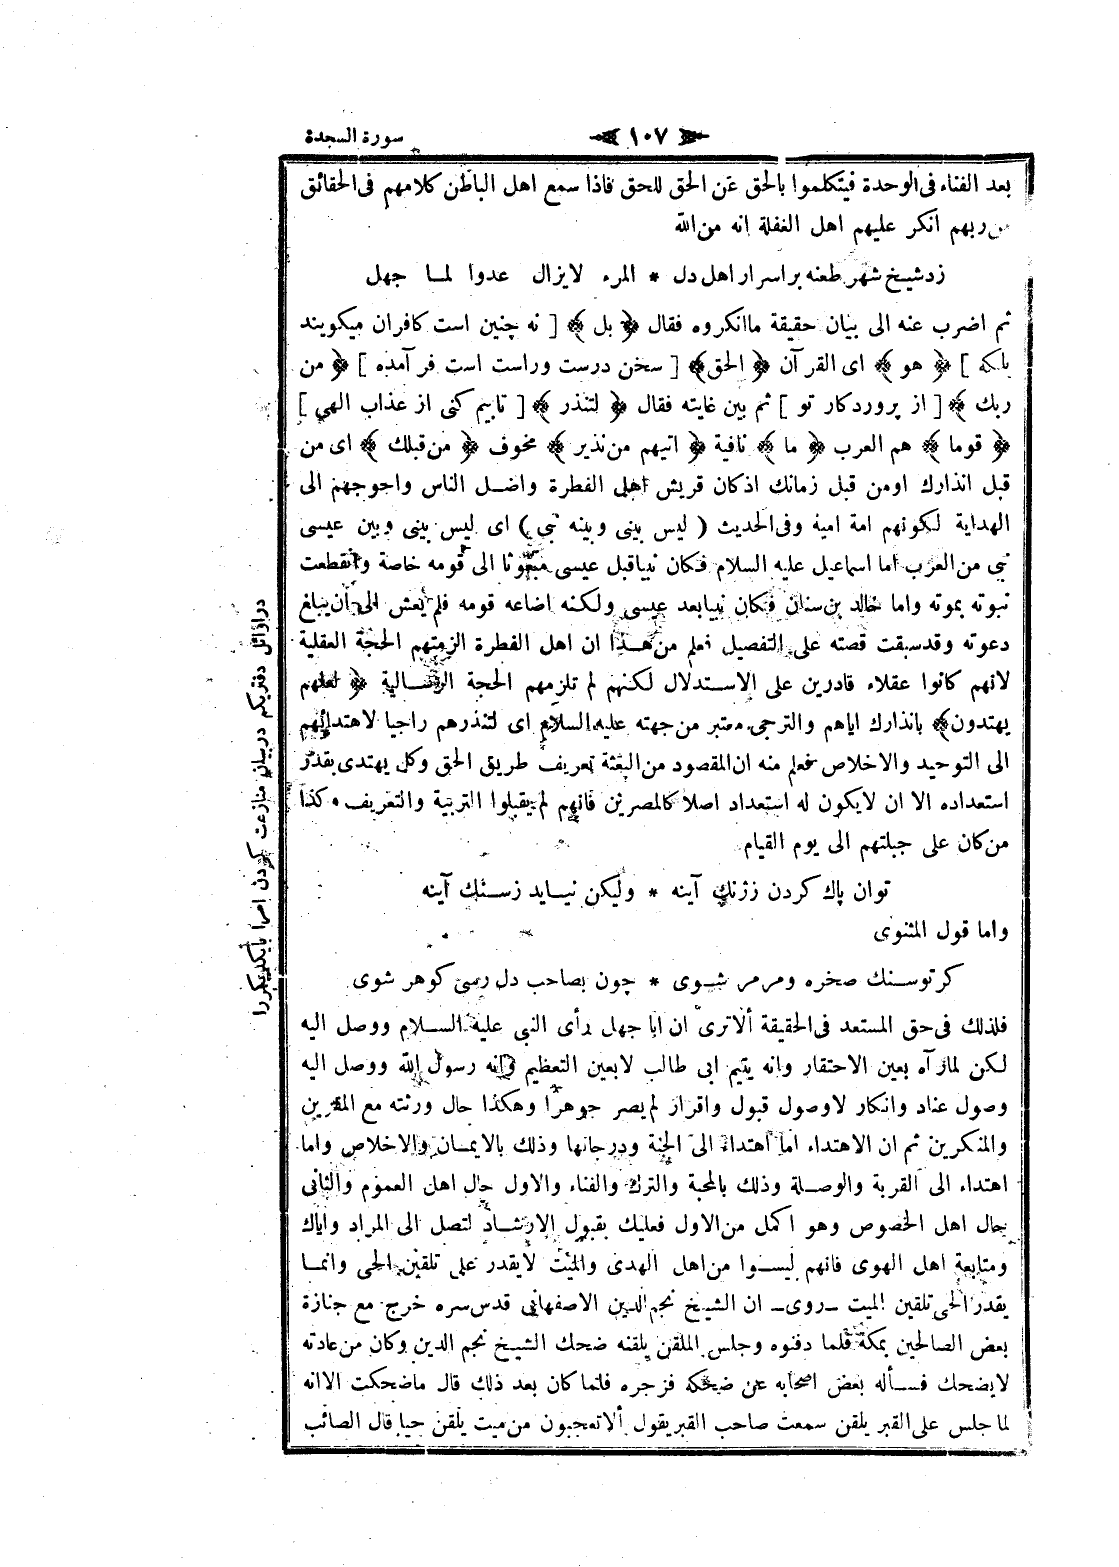 سورة السجدة
﴿ ١٠٧ ﴾
بعد الفناء فى الوحدة فيتكلموا بالحق عن الحق للحق فاذا سمع اهل الباطن كلامهم فى الحقائق
من ربهم انكر عليهم اهل الغفلة انه من الله
زد شيخ شهر طعنه بر اسرار اهل دل * المرء لا يزال عدوا لما جهل
ثم اضرب عنه الى بيان حقيقة ما انكروه فقال ﴿ بل ﴾ [ نه چنين است كافران ميكويند
بلكه ] ﴿ هو ﴾ اى القرآن ﴿ الحق ﴾ [ سخن درست وراست است فرآمده ] ﴿ من
ربك ﴾ [ از پروردكار تو ] ثم بين غايته فقال ﴿ لتنذر ﴾ [ تابيم كنى از عذاب الهى ]
﴿ قوما ﴾ هم العرب ﴿ ما ﴾ نافية ﴿ اتيهم من نذير ﴾ مخوف ﴿ من قبلك ﴾ اى من
قبل انذارك اومن قبل زمانك اذ كان قريش اهل الفطرة واضل الناس واحوجهم الى
الهداية لكونهم امة امية وفى الحديث ( ليس بينى وبينه نبي ) اى ليس بينى وبين عيسى
نبي من العرب اما اسماعيل عليه السلام فكان نبيا قبل عيسى مبعوثا الى قومه خاصة وانقطعت
نبوته بموته واما خالد بن سنان فكان نبيا بعد عيسى ولكنه اضاعه قومه فلم يعش الى أن يبلغ
دعوته وقد سبقت قصته على التفصيل فعلم من هذا ان اهل الفطرة الزمتهم الحجة العقلية
لانهم كانوا عقلاء قادرين على الاستدلال لكنهم لم تلزمهم الحجة الرسالية ﴿ لعلهم
يهتدون ﴾ بانذارك اياهم والترجى معتبر من جهته عليه السلام اى لتنذرهم راجيا لاهتدائهم
الى التوحيد والاخلاص فعلم منه ان المقصود من البعثة تعريف طريق الحق وكل يهتدى بقدر
استعداده الا ان لا يكون له استعداد اصلا كالمصرين فانهم لم يقبلوا التربية والتعريف وكذا
من كان على جبلتهم الى يوم القيام
توان پاك كردن ززنك آينه * وليكن نيايد زسنك آينه
واما قول المثنوى
كر توسنك صخره ومرمر شوى * چون بصاحب دل رسى كوهر شوى
فلذلك فى حق المستعد فى الحقيقة ألا ترى ان ابا جهل رأى النبي عليه السلام ووصل اليه
لكن لما رآه بعين الاحتقار وانه يتيم ابى طالب لا بعين التعظيم وانه رسول الله ووصل اليه
وصول عناد وانكار لا وصول قبول واقرار لم يصر جوهرا وهكذا حال ورثته مع المقرين
والمنكرين ثم ان الاهتداء اما اهتداء الى الجنة ودرجاتها وذلك بالايمان والاخلاص واما
اهتداء الى القربة والوصلة وذلك بالمحبة والترك والفناء والاول حال اهل العموم والثانى
حال اهل الخصوص وهو اكمل من الاول فعليك بقبول الارشاد لتصل الى المراد واياك
ومتابعة اهل الهوى فانهم ليسوا من اهل الهدى والميت لا يقدر على تلقين الحى وانما
يقدر الحى تلقين الميت ـ روى ـ ان الشيخ نجم الدين الاصفهانى قدس سره خرج مع جنازة
بعض الصالحين بمكة فلما دفنوه وجلس الملقن يلقنه ضحك الشيخ نجم الدين وكان من عادته
لا يضحك فسأله بعض اصحابه عن ضحكه فزجره فلما كان بعد ذلك قال ما ضحكت الا انه
لما جلس على القبر يلقن سمعت صاحب القبر يقول ألا تعجبون من ميت يلقن حيا قال الصائب
در اوائل دفتر يكم در بيان منازعت كردن امرا با يكديكر را